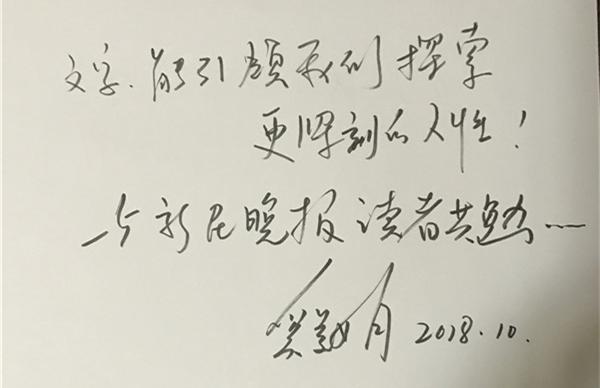 文字、能引领我们探索
更深刻的人性!
与新民晚报读者共勉……
2018.10.